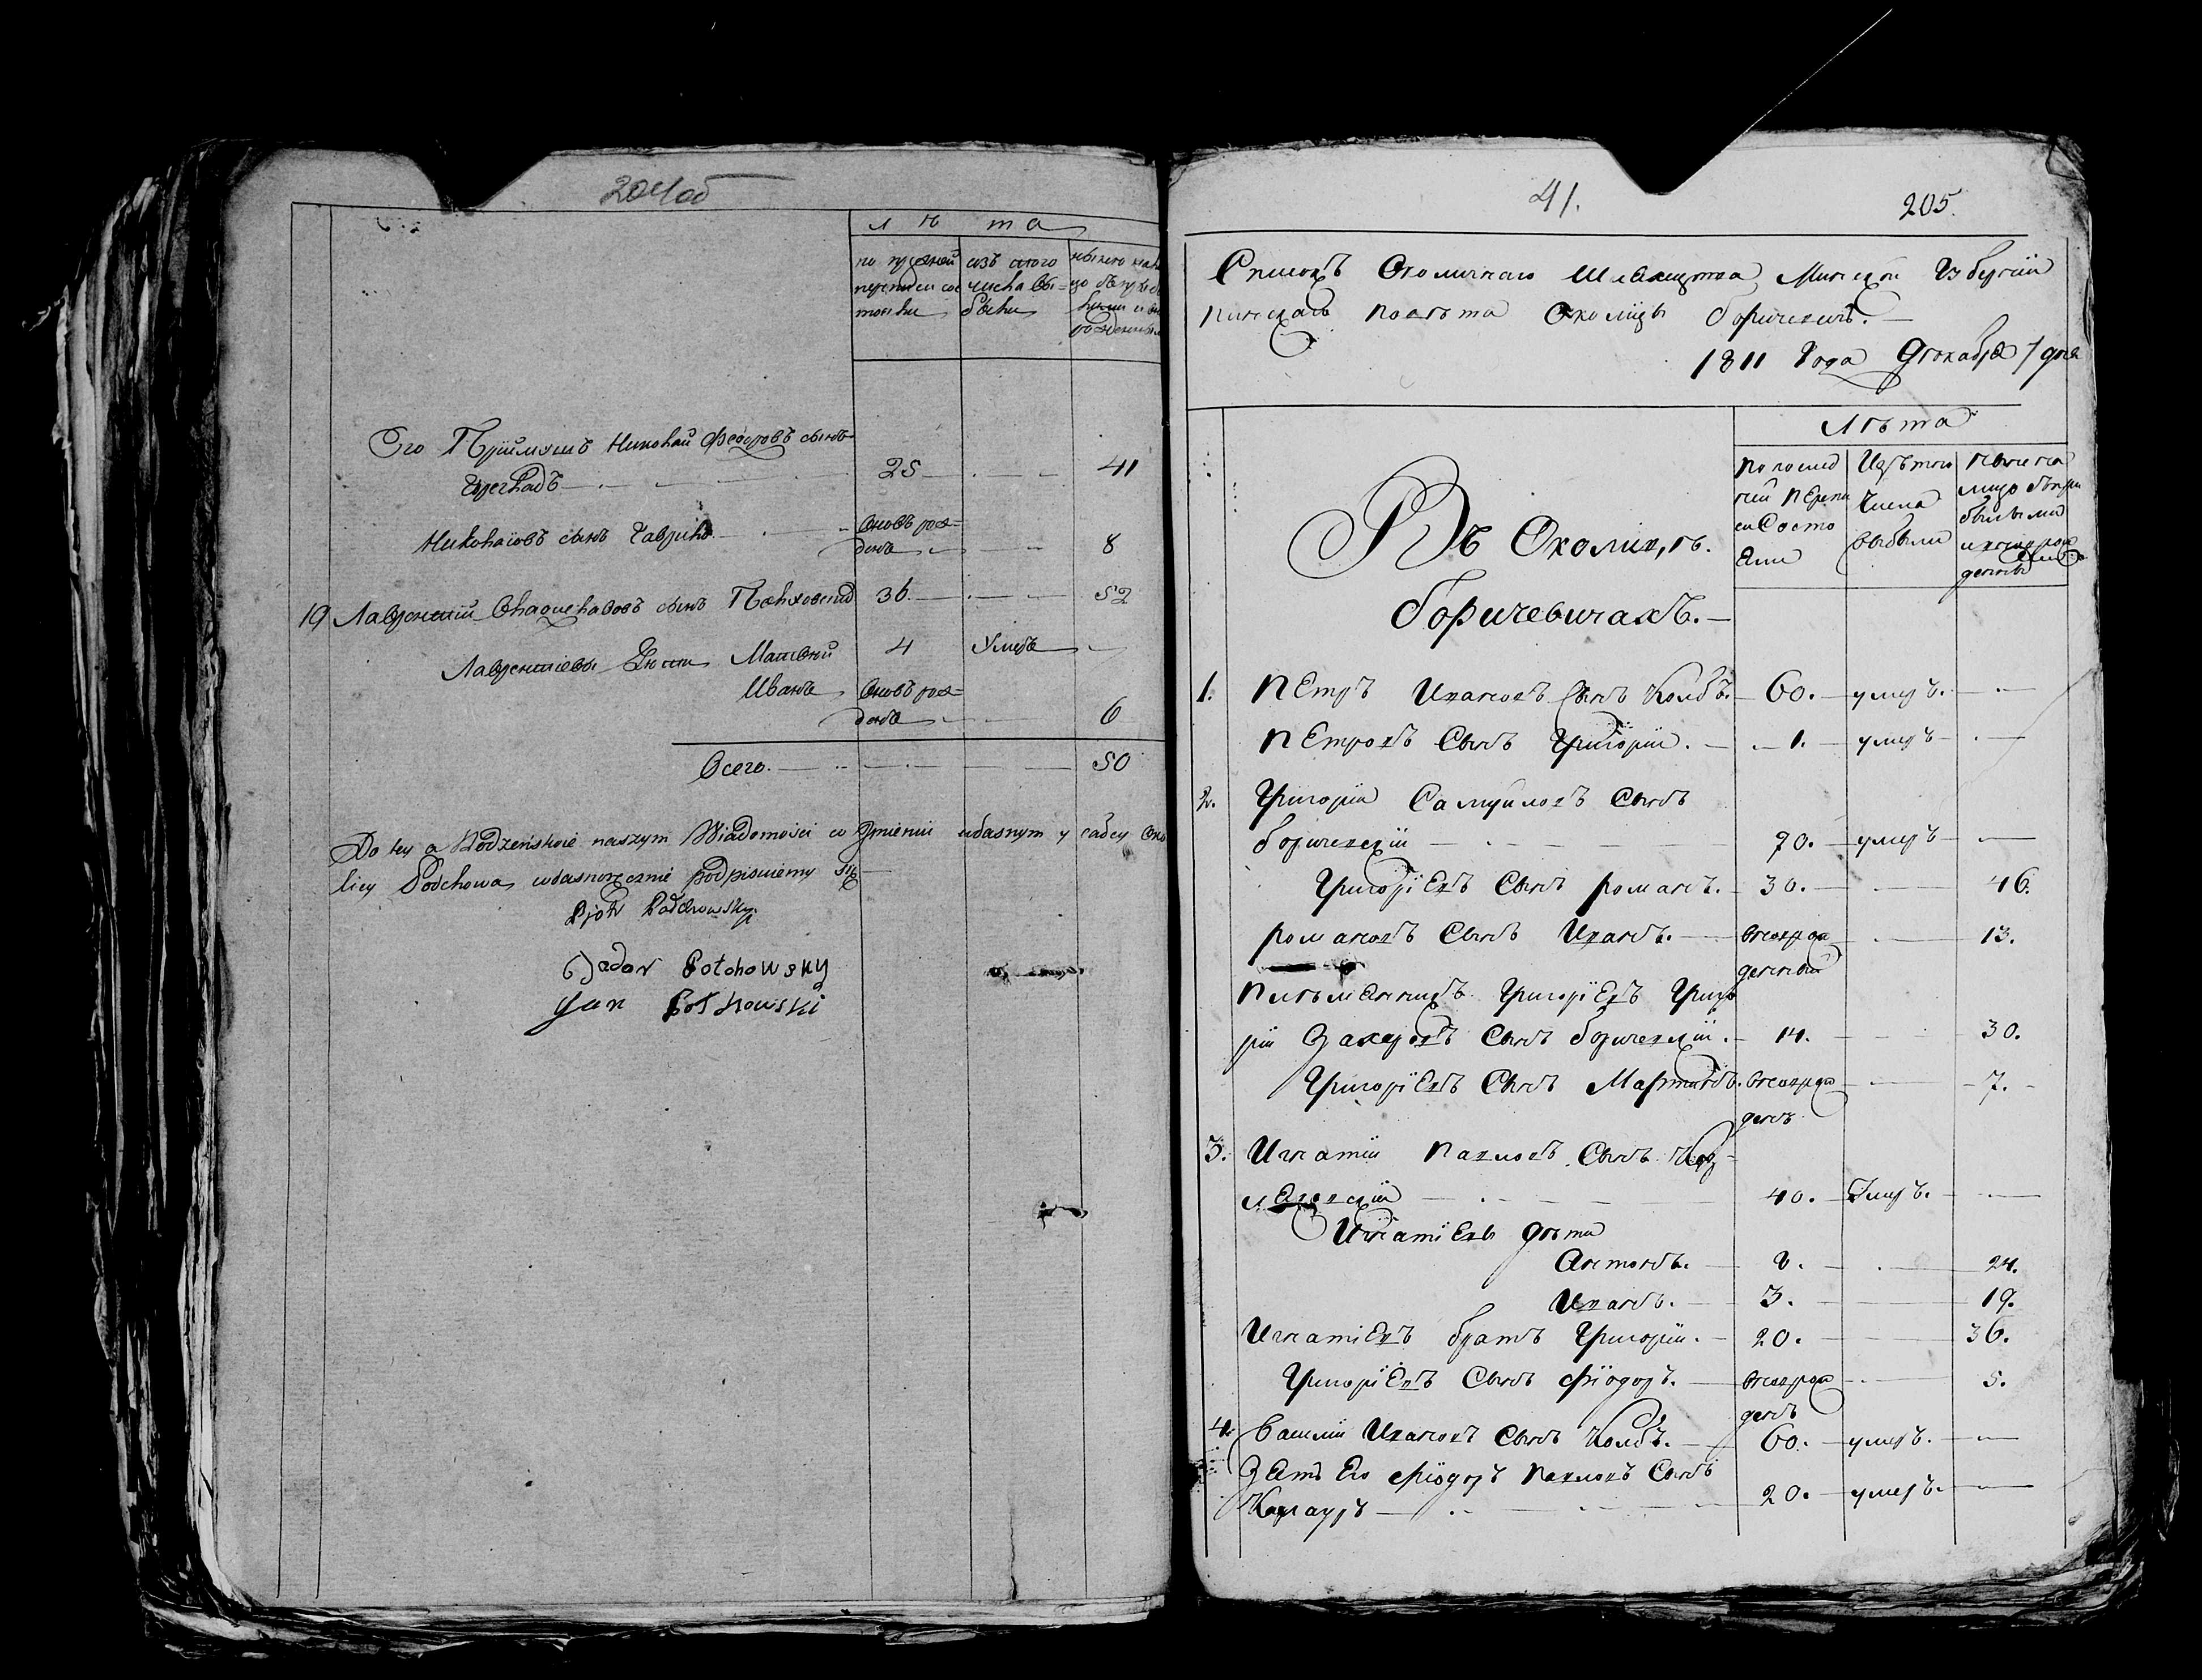 204об
Лѣта
по прежней
переписи сос
тояли
изъ того
числа вы=
были
Его Пріймышъ Николай Федоровъ сынъ
25 41
Николаевъ сынъ Гаврило вновь рож=
денъ 8
19 Лаврентій Владиславовъ сынъ Полховскій 36 52
Лаврентіевы дѣти Матвей 4 умеръ
Иванъ вновь рож=
денъ 6
Всего 50
Do tey a Rodzeństwie naszym Wiadomości w Imieniu własnym y całey Oko
licy Połchowa własnoręcznie podpisuiemy się
Piotr Połchowsky
Fador Połchowsky
Jan Połchowski
41.
205.
Списокъ Околичнаго Шляхецтва Минской Губерніи
Пинскаго Повѣта Околицы Боричевичъ.
1811 Года Декабря 7 дня
Лѣта
По послед
ней Перепи
си Состо
яли
Изъ того
Числа
выбыли
Въ Околицѣ
Боричевичахъ.
1. Петръ Ивановъ Сынъ Колбъ. 60. умеръ.
Петровъ Сынъ Григорій. 1. умеръ
2. Григорій Самуиловъ Сынъ
Боричевскій 70. умеръ
Григоріевъ Сынъ Романъ. 30. 46.
Романовъ Сынъ Иванъ. вновь ро
денный 13.
Племенникъ Григоріевъ Григо
рій Захаровъ Сынъ Боричевскій. 14. 30.
Григоріевъ Сынъ Мартинъ. вновь ро
денъ 7.
3. Игнатій Павловъ Сынъ
40. Умеръ.
Игнатіевы Дѣти
Антонъ. 8. 24.
Иванъ. 3. 19.
Игнатіевъ братъ Григорій. 20. 36.
Григоріевъ Сынъ Фіодоръ. вновь ро
денъ 5.
4. Василій Ивановъ Сынъ Колбъ. 60. умеръ.
Зеть Его Фіодоръ Павловъ Сынъ
20. умеръ.